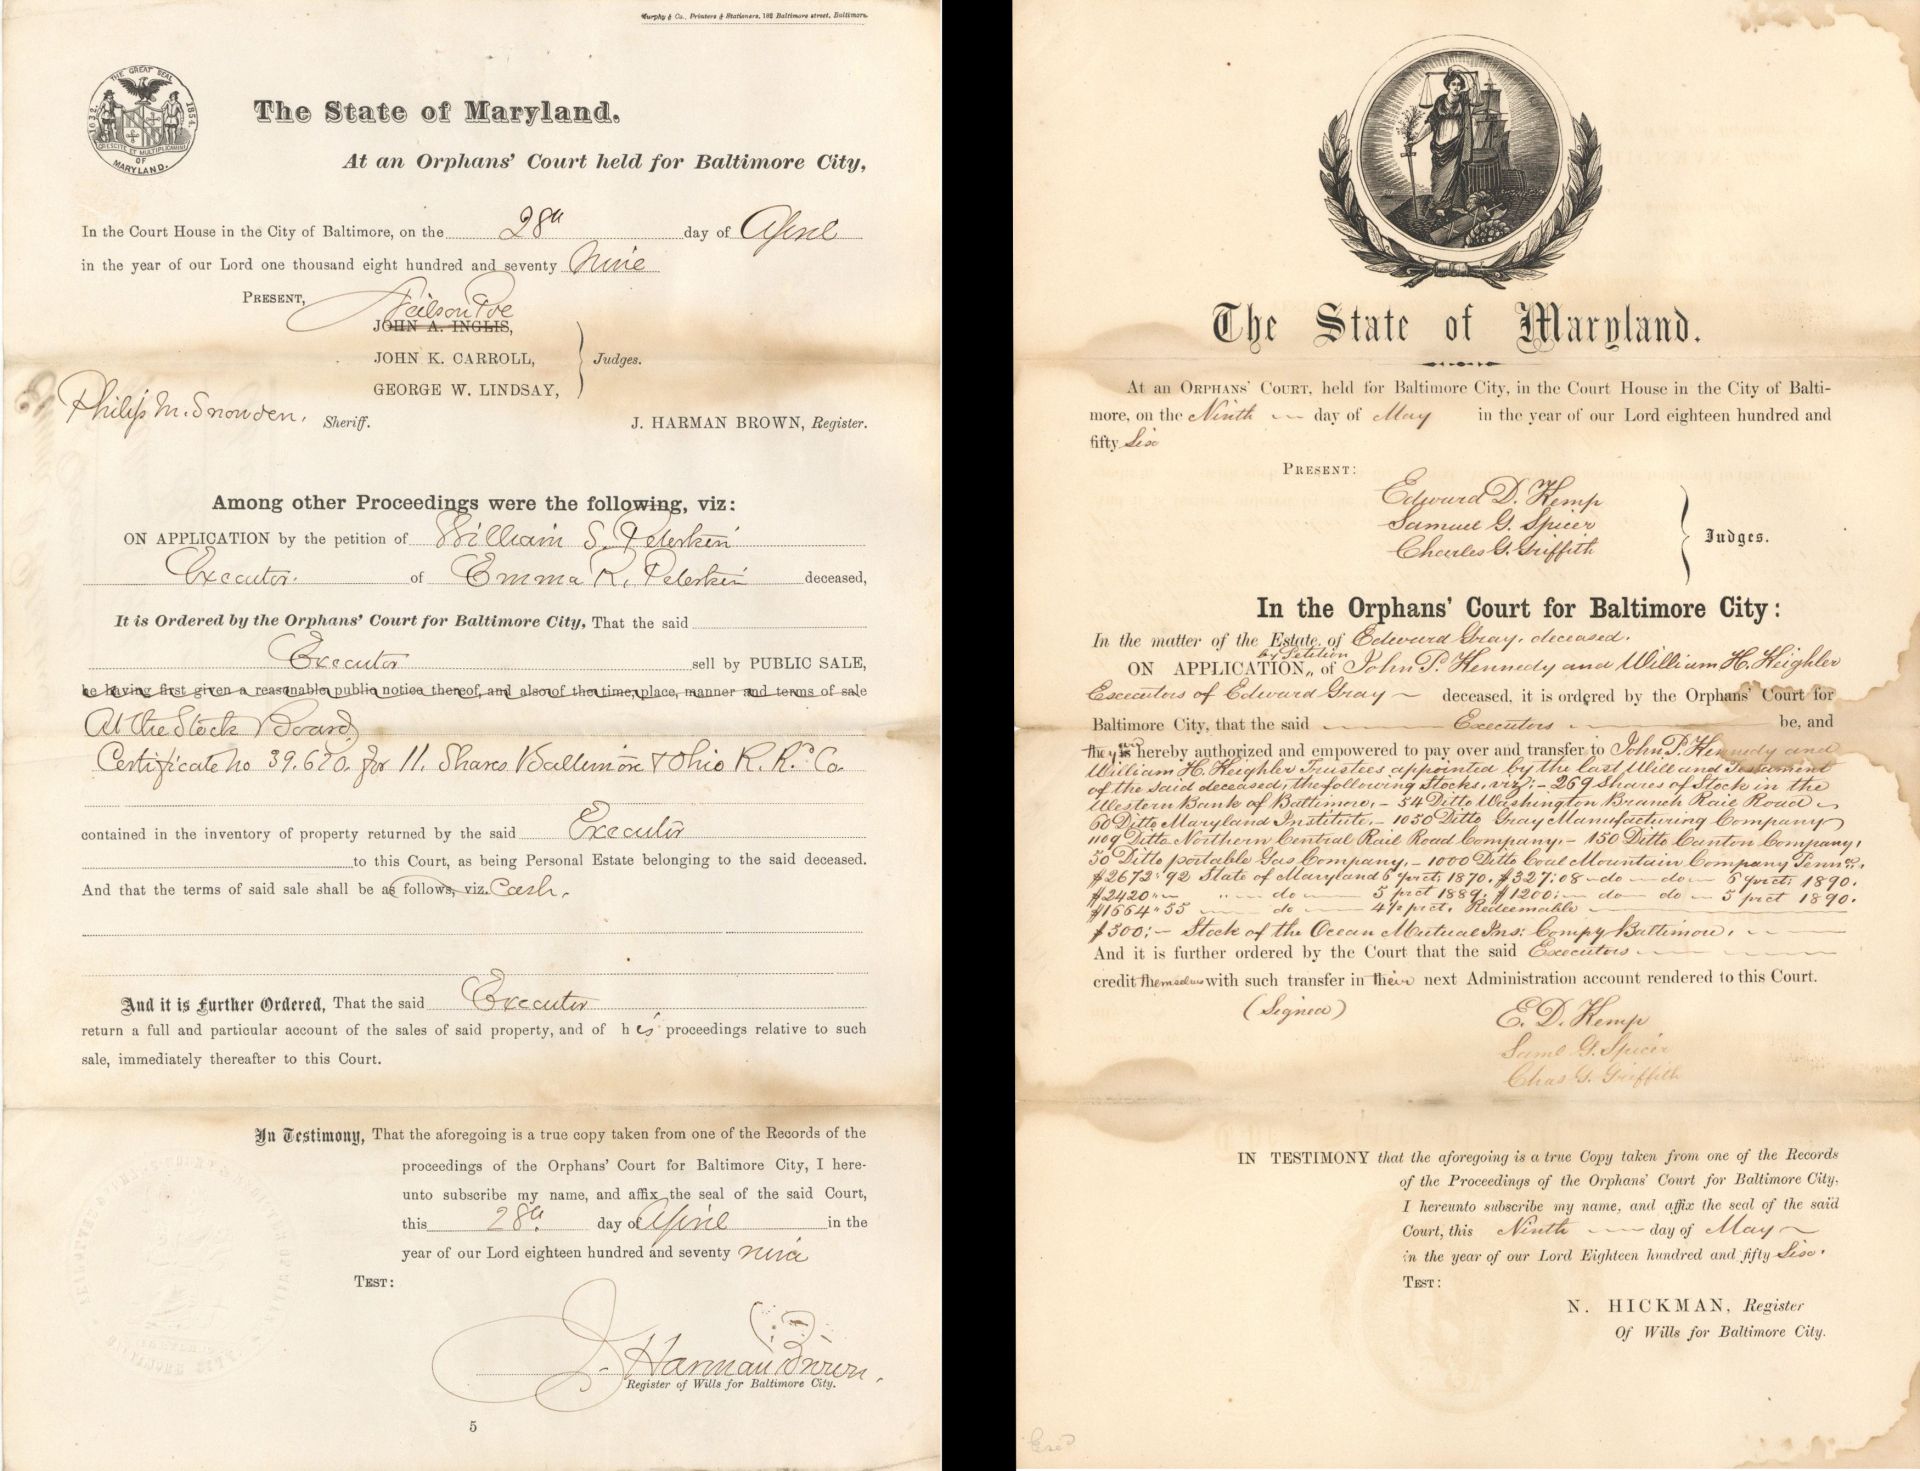 Murphy & Co., Printers & Stationers, 182 Baltimore street, Baltimore.
THE GREAT SEAL
1632. 1854.
CRESCITE ET MULTIPLICAMINI
OF
MARYLAND.
The State of Maryland.
At an Orphans' Court held for Baltimore City,
In the Court House in the City of Baltimore, on the 28th day of April
in the year of our Lord one thousand eight hundred and seventy Nine
PRESENT,
Neilson Poe
JOHN A. INGLIS,
JOHN K. CARROLL,
Judges.
GEORGE W. LINDSAY,
Philip M. Snowden, Sheriff.
J. HARMAN BROWN, Register.
Among other Proceedings were the following, viz:
ON APPLICATION by the petition of William S. Peterkin
Executor. of Emma R. Peterkin deceased,
It is Ordered by the Orphans' Court for Baltimore City, That the said
Executor sell by PUBLIC SALE,
he having first given a reasonable public notice thereof, and also of the time, place, manner and terms of sale
At the Stock Board,
Certificate no 39.670. for 11. Shares Baltimore & Ohio R. R. Co.
contained in the inventory of property returned by the said Executor
to this Court, as being Personal Estate belonging to the said deceased.
And that the terms of said sale shall be as follows, viz. Cash.
And it is Further Ordered, That the said Executor
return a full and particular account of the sales of said property, and of his proceedings relative to such
sale, immediately thereafter to this Court.
In Testimony, That the aforegoing is a true copy taken from one of the Records of the
proceedings of the Orphans' Court for Baltimore City, I here-
unto subscribe my name, and affix the seal of the said Court,
this 28th day of April in the
year of our Lord eighteen hundred and seventy nine
TEST:
J. Harman Brown.
Register of Wills for Baltimore City.
5
The State of Maryland.
At an ORPHANS' COURT, held for Baltimore City, in the Court House in the City of Balti-
more, on the Ninth day of May in the year of our Lord eighteen hundred and
fifty Six
PRESENT:
Edward D. Kemp
Samuel G. Spicer
Judges.
Charles G. Griffith
In the Orphans' Court for Baltimore City:
In the matter of the Estate of Edward Gray, deceased.
by Petition
ON APPLICATION,, of John P. Kennedy and William H. Keighler
Executors of Edward Gray deceased, it is ordered by the Orphans' Court for
Baltimore City, that the said Executors be, and
they are hereby authorized and empowered to pay over and transfer to John P. Kennedy and
William H. Keighler Trustees appointed by the last Will and Testament
of the said deceased, the following Stocks, viz: - 269 Shares of Stock in the
Western Bank of Baltimore, - 54 Ditto Washington Branch Rail Road
60 Ditto Maryland Institute. - 1050 Ditto Gray Manufacturing Company
1109 Ditto Northern Central Rail Road Company. - 150 Ditto Canton Company,
50 Ditto portable Gas Company. - 1000 Ditto Coal Mountain Company Penna.
$2672.92 State of Maryland 6 prct: 1870. $327:08 - do - do - 6 prct: 1890.
$2420 " - do - 5 prct 1889. $1200: - do - do - 5 prct 1890.
$1664"55 do 4½ prct. Redeemable
$300: - Stock of the Ocean Mutual Ins: Compy Baltimore.
And it is further ordered by the Court that the said Executors
credit themselves with such transfer in their next Administration account rendered to this Court.
(Signed)
E. D. Kemp
Saml G. Spicer
Chas G. Griffith
IN TESTIMONY that the aforegoing is a true Copy taken from one of the Records
of the Proceedings of the Orphans' Court for Baltimore City,
I hereunto subscribe my name, and affix the seal of the said
Court, this Ninth day of May
in the year of our Lord Eighteen hundred and fifty Six.
TEST:
N. HICKMAN, Register
Of Wills for Baltimore City.